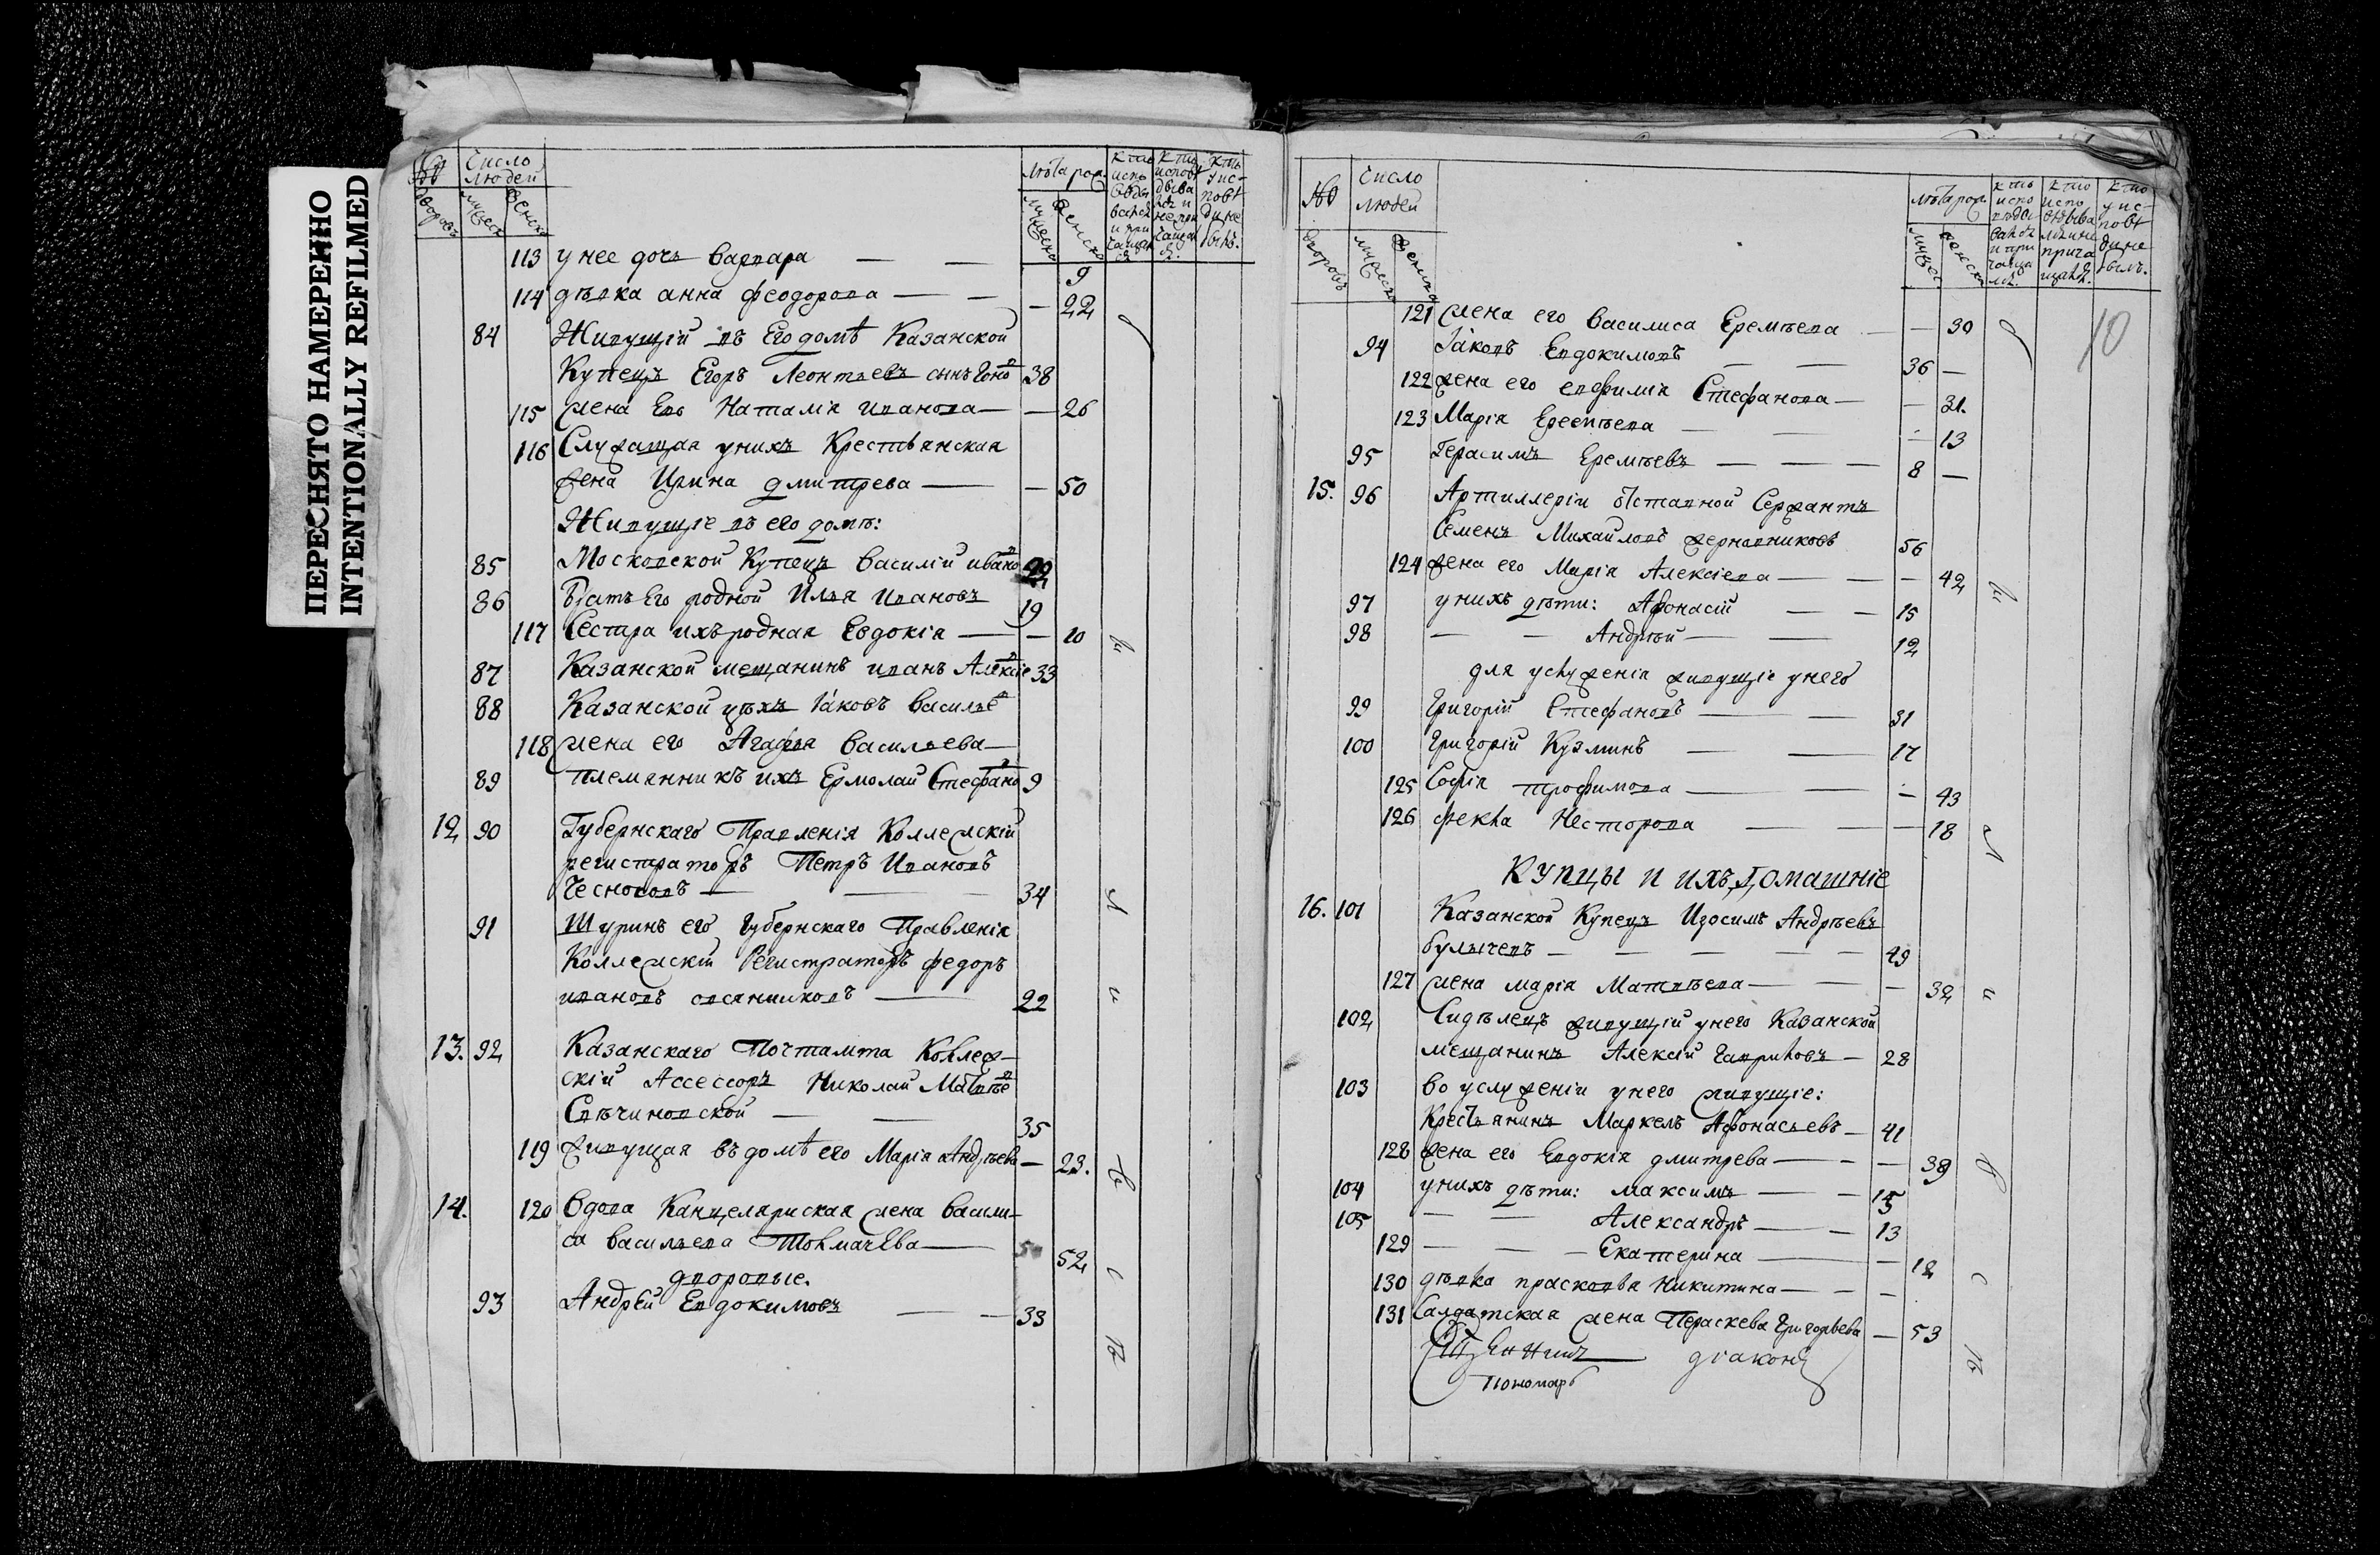 ПЕРЕСНЯТО НАМЕРЕННО
INTENTIONALLY REFILMED
№ Число людей Лѣта рож.
дворовъ мужеск женско мужеско женско
113 у нее дочь Варвара — — 9
114 дѣвка анна феодорова — — — 22
84 Живущій въ Его домѣ Казанской
Купецъ Егоръ Леонтьевъ сынъ 38
115 жена Его Наталія иванова — — 26
116 Служащая у нихъ Крестьянская
жена Ирина дмитрева — — 50
Живущіе въ его домѣ:
85 Московской Купецъ Василій ивано
86 Братъ Его родной Илья Ивановъ 19
117 Сестра ихъ родная Евдокія — — 10
87 Казанской мещанинъ иванъ Алексіе 33
88 Казанской цѣхъ Іаковъ Василье
118 жена его Агафья Васильева —
89 племянникъ ихъ Ермолай Стефано 9
12 90 Губернскаго Правленія Коллежскій
регистраторъ Петръ Ивановъ
Чесноковъ — — — 34
91 Шуринъ его Губернскаго Правленія
Коллежскій Регистраторъ федоръ
ивановъ овсяниковъ — 22
13. 92 Казанскаго Почтамта Коллеж-
скій Ассессоръ Николай Матвѣе
Свѣчиновской — — 35
119 живущая въ домѣ его Марія Андрѣева — 23.
14. 120 Вдова Канцеляриская жена Васили-
са васильева Толмачева — 52
дворовые.
93 Андрей Евдокимовъ — — 33
№ Число людей Лѣта рож.
дворовъ мужеско женско мужес женско
10
121 жена его Василиса Еремѣева — — 30
94 Іаковъ Евдокимовъ — — 36 —
122 жена его евфимія Стефанова — — 31.
123 Марія Еремѣева — — — 13
95 Герасимъ Еремѣевъ — — — 8 —
15. 96 Артиллеріи отставной Сержантъ
Семенъ Михайловъ жерновниковъ 56
124 жена его Марія Алексіева — — — 42
97 у нихъ дѣти: Афонасій — — 15
98 — — Андрѣй — — 12
для услуженія живущіе у него
99 Григорій Стефановъ — — 31
100 Григорій Кузминъ — — 17
125 Софія трофимова — — — 43
126 фекла Несторова — — — 18
КУПЦЫ И ИХЪ ДОМАШНІЕ
16. 101 Казанской Купецъ Изосимъ Андрѣевъ
булычевъ — — — — — 49
127 жена марія Матвѣева — — — 32
102 Сидѣлецъ живущій у него Казанской
мещанинъ Алексій Гавриловъ — 28
103 во услуженіи у него живущіе:
Крестьянинъ Маркелъ Афонасьевъ — 41
128 жена его Евдокія дмитрева — — — 39
104 у нихъ дѣти: максимъ — — 15
105 — — Александръ — — 13
129 — — — Екатерина — — 12
130 дѣвка прасковья Никитина — — —
131 Салдатская жена Параскева Григорьева — 53
діаконъ
Пономарь